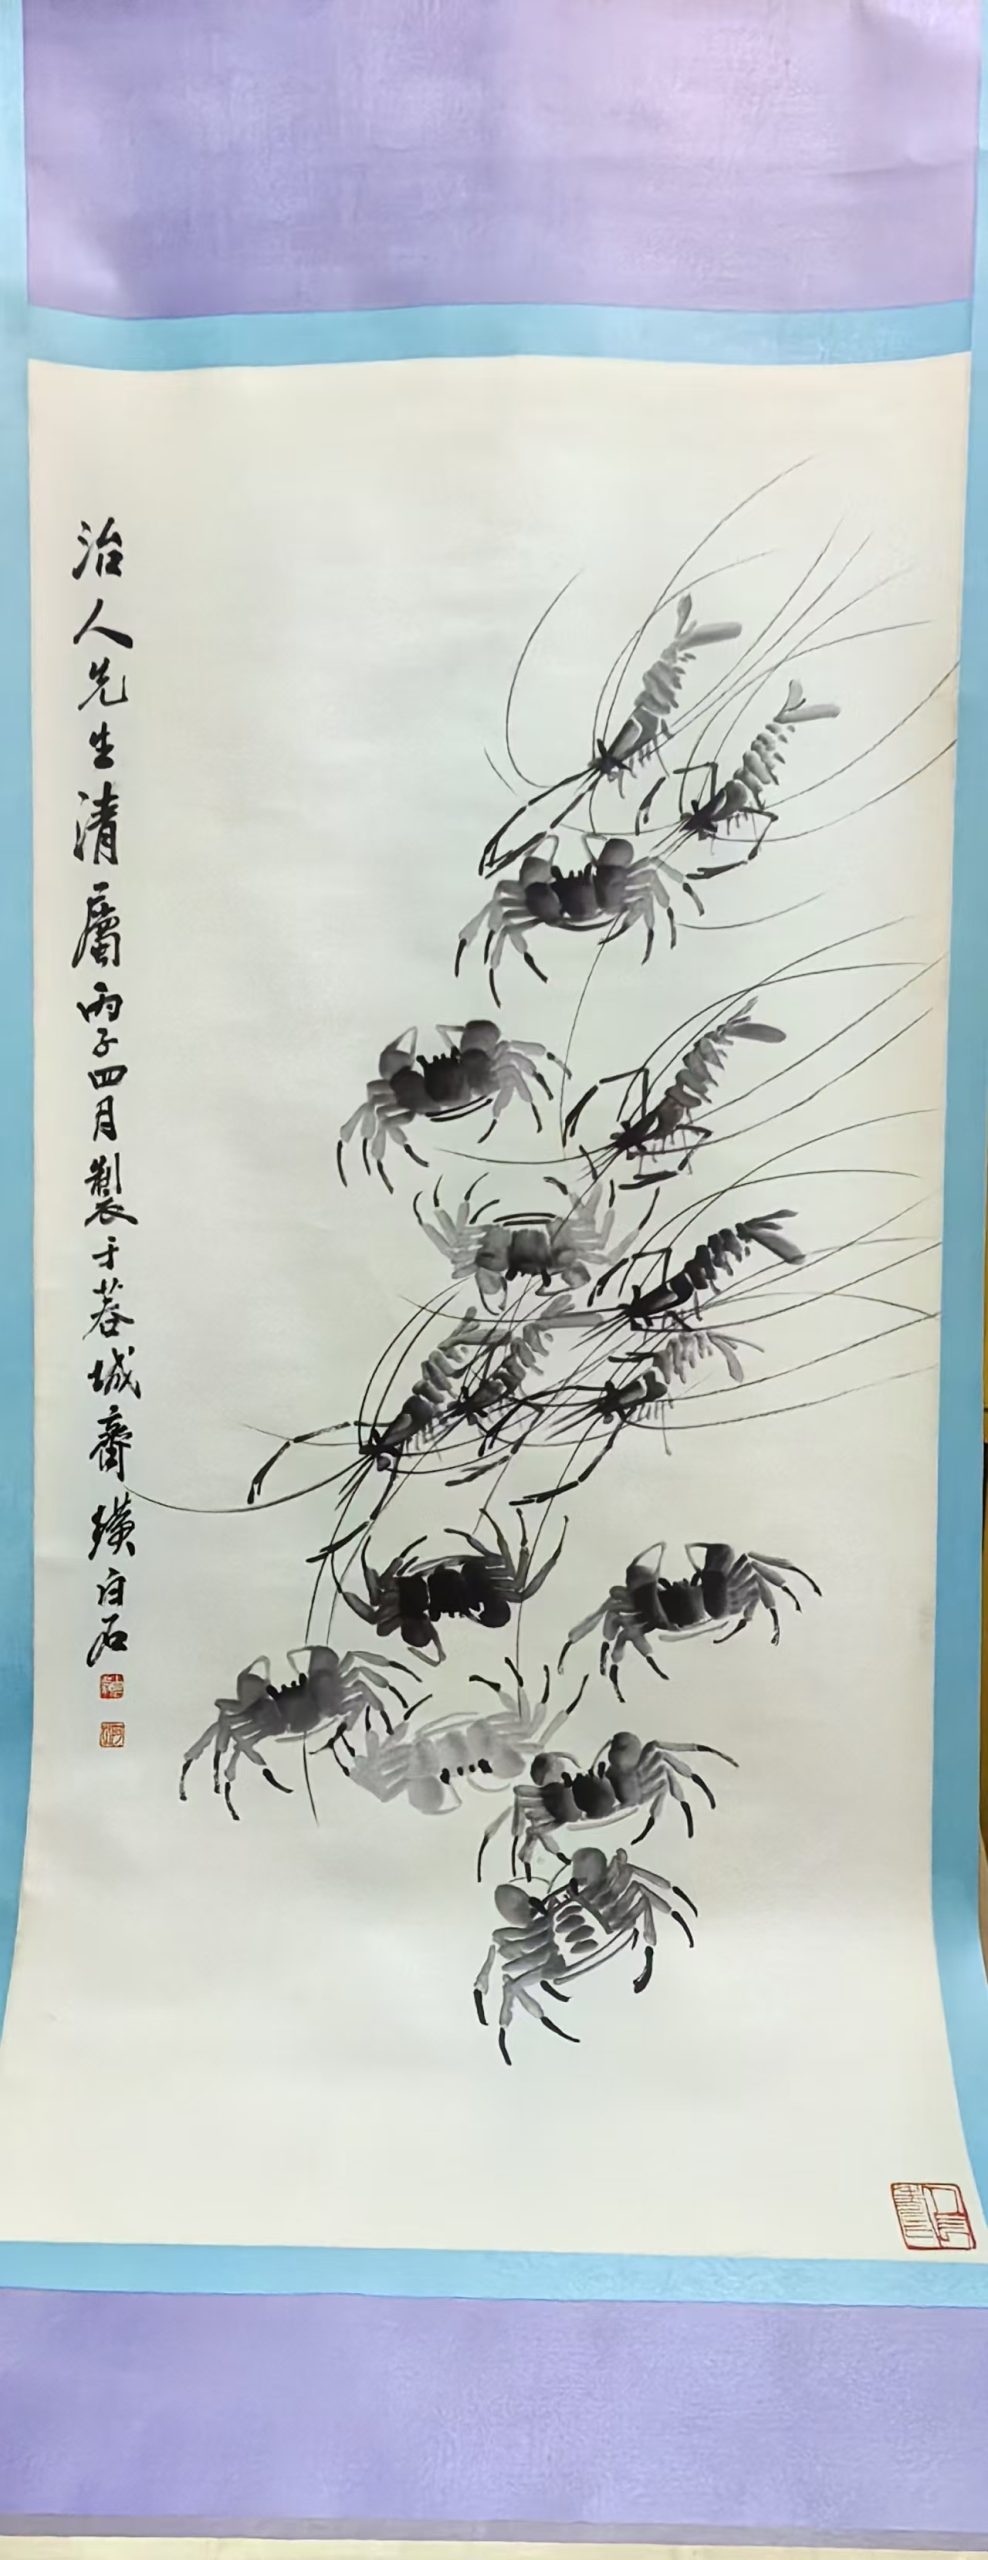 治人先生清屬丙子四月製于蓉城齊璜白石